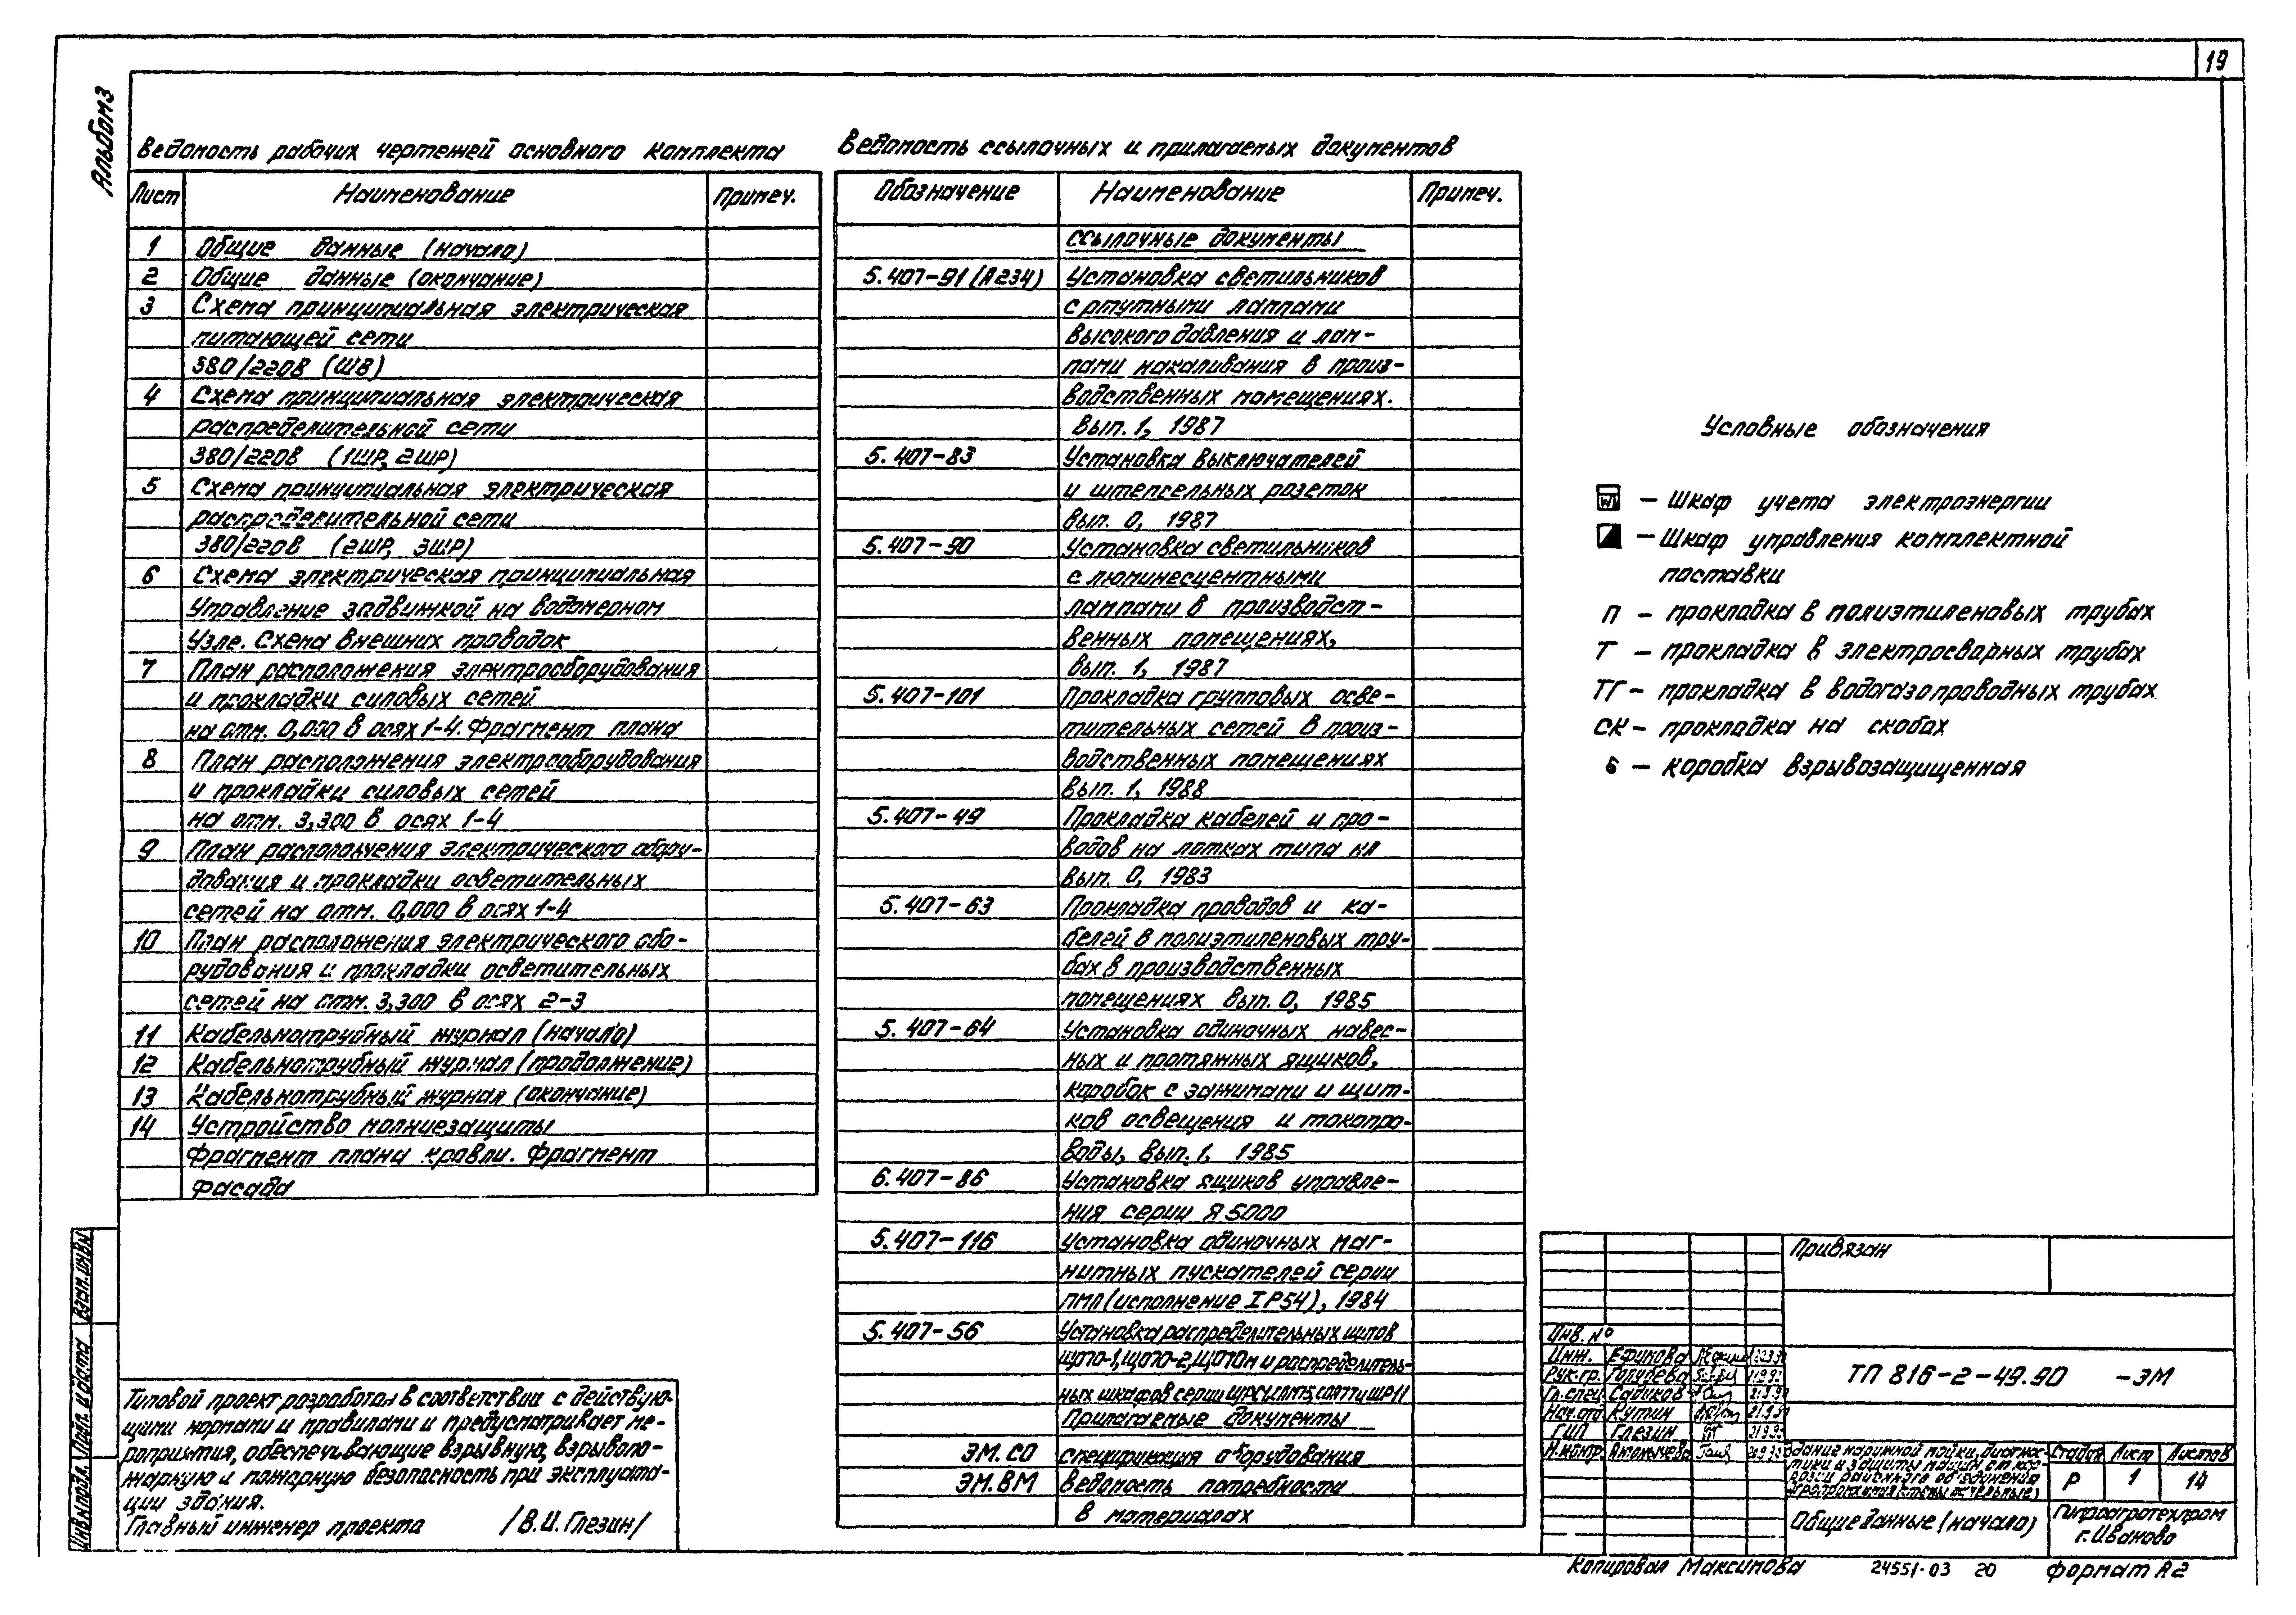 19
Альбом 3
Ведомость рабочих чертежей основного комплекта
Лист Наименование Примеч.
1 Общие данные (начало)
2 Общие данные (окончание)
3 Схема принципиальная электрическая
питающей сети
380/220В (ШВ)
4 Схема принципиальная электрическая
распределительной сети
380/220В (1ШР, 2ШР)
5 Схема принципиальная электрическая
распределительной сети
380/220В (2ШР, 3ШР)
6 Схема электрическая принципиальная
Управление задвижкой на водомерном
Узле. Схема внешних проводок
7 План расположения электрооборудования
и прокладки силовых сетей
на отм. 0,000 в осях 1-4. Фрагмент плана
8 План расположения электрооборудования
и прокладки силовых сетей
на отм. 3,300 в осях 1-4
9 План расположения электрического обору-
дования и прокладки осветительных
сетей на отм. 0,000 в осях 1-4
10 План расположения электрического обо-
рудования и прокладки осветительных
сетей на отм. 3,300 в осях 2-3
11 Кабельнотрубный журнал (начало)
12 Кабельнотрубный журнал (продолжение)
13 Кабельнотрубный журнал (окончание)
14 Устройство молниезащиты
Фрагмент плана кровли. Фрагмент
фасада
Ведомость ссылочных и прилагаемых документов
Обозначение Наименование Примеч.
Ссылочные документы
5.407-91 (А234) Установка светильников
с ртутными лампами
высокого давления и лам-
пами накаливания в произ-
водственных помещениях.
Вып. 1, 1987
5.407-83 Установка выключателей
и штепсельных розеток
Вып. 0, 1987
5.407-90 Установка светильников
с люминесцентными
лампами в производст-
венных помещениях,
Вып. 1, 1987
5.407-101 Прокладка групповых осве-
тительных сетей в произ-
водственных помещениях
Вып. 1, 1988
5.407-49 Прокладка кабелей и про-
водов на лотках типа нл
Вып. 0, 1983
5.407-63 Прокладка проводов и ка-
белей в полиэтиленовых тру-
бах в производственных
помещениях Вып. 0, 1985
5.407-64 Установка одиночных навес-
ных и протяжных ящиков,
коробок с зажимами и щит-
ков освещения и токопро-
воды, Вып. 1, 1985
6.407-86 Установка ящиков управле-
ния серии Я5000
5.407-116 Установка одиночных маг-
нитных пускателей серии
ПМЛ (исполнение IP54), 1984
5.407-56 Установка распределительных щитов
ЩО70-1, ЩО70-2, ЩО70м и распределитель-
ных шкафов серии
Прилагаемые документы
ЭМ.СО Спецификация оборудования
ЭМ.ВМ Ведомость потребности
в материалах
Условные обозначения
Wh – Шкаф учета электроэнергии
– Шкаф управления комплектной
поставки
П – прокладка в полиэтиленовых трубах
Т – прокладка в электросварных трубах
ТГ – прокладка в водогазопроводных трубах
СК – прокладка на скобах
б – коробка взрывозащищенная
Типовой проект разработан в соответствии с действую-
щими нормами и правилами и предусматривает ме-
роприятия, обеспечивающие взрывную, взрывопо-
жарную и пожарную безопасность при эксплуата-
ции здания.
Главный инженер проекта /В.И. Глезин/
Инв.№ подл. Подп. и дата Взам.инв№
Привязан
Инв. №
Инж. Ефимова
Рук.гр. Голубева
Гл.спец Садиков
Нач.отд Кутин
ГИП Глезин
Н.контр.
ТП 816-2-49.90 -ЭМ
Здание наружной мойки, диагнос-
тики и защиты машин от кор-
розии районного объединения
Стадия Лист Листов
Р 1 14
Общие данные (начало)
Гипроагротехпром
г. Иваново
Копировал Максимова 24551-03 20 Формат А2